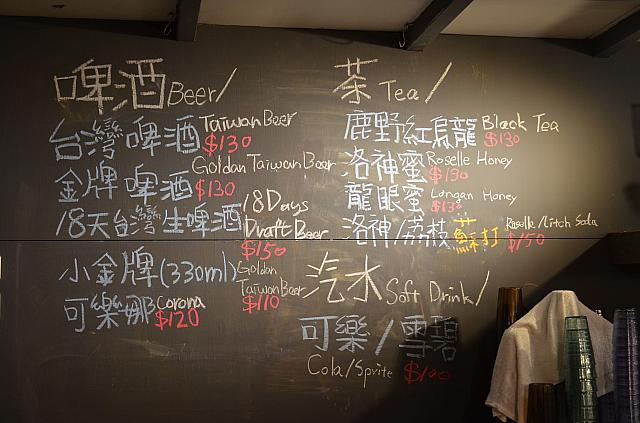 啤酒 Beer/
台灣啤酒 Taiwan Beer $130
金牌啤酒 Goldan Taiwan Beer $130
18天台灣生啤酒 18Days Draft Beer $150
小金牌(330ml) Goldan Taiwan Beer $110
可樂娜 Corona $120
茶 Tea/
鹿野紅烏龍 Black Tea $130
洛神蜜 Roselle Honey $130
龍眼蜜 Longan Honey $130
洛神/荔枝蘇打 Roselle/Litch Soda $150
汽水 Soft Drink/
可樂/雪碧
Cola/Sprite $100